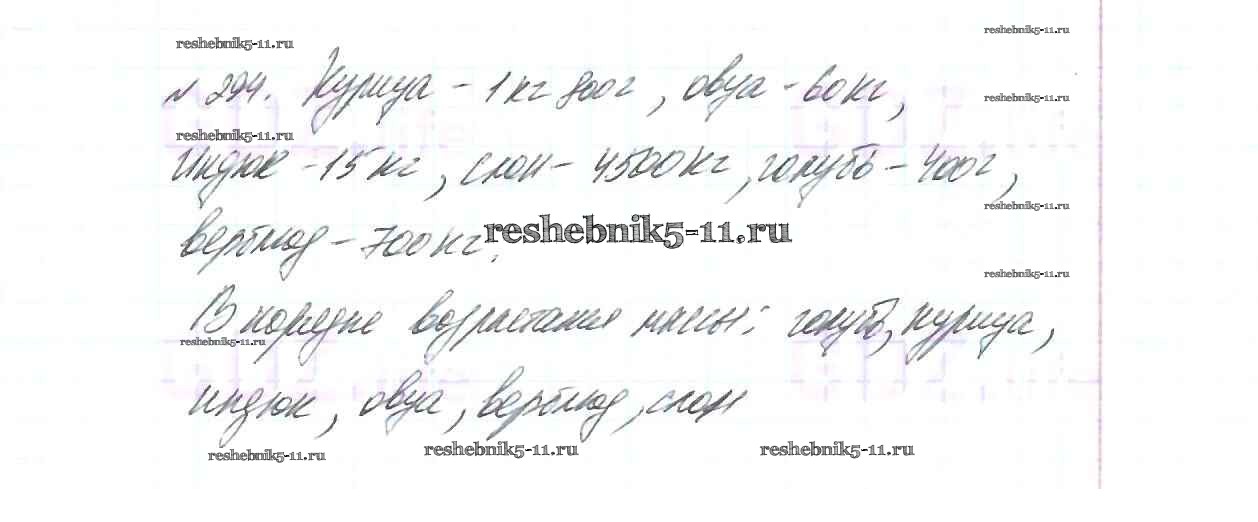 reshebnik5-11.ru
reshebnik5-11.ru
№ 294. Курица - 1 кг 800г, овца - 60 кг,
reshebnik5-11.ru
reshebnik5-11.ru
Индюк - 15 кг, слон - 4500 кг, голубь - 400г,
reshebnik5-11.ru
верблюд - 700 кг.
reshebnik5-11.ru
reshebnik5-11.ru
В порядке возрастания массы: голубь, курица,
reshebnik5-11.ru
индюк, овца, верблюд, слон
reshebnik5-11.ru
reshebnik5-11.ru
reshebnik5-11.ru